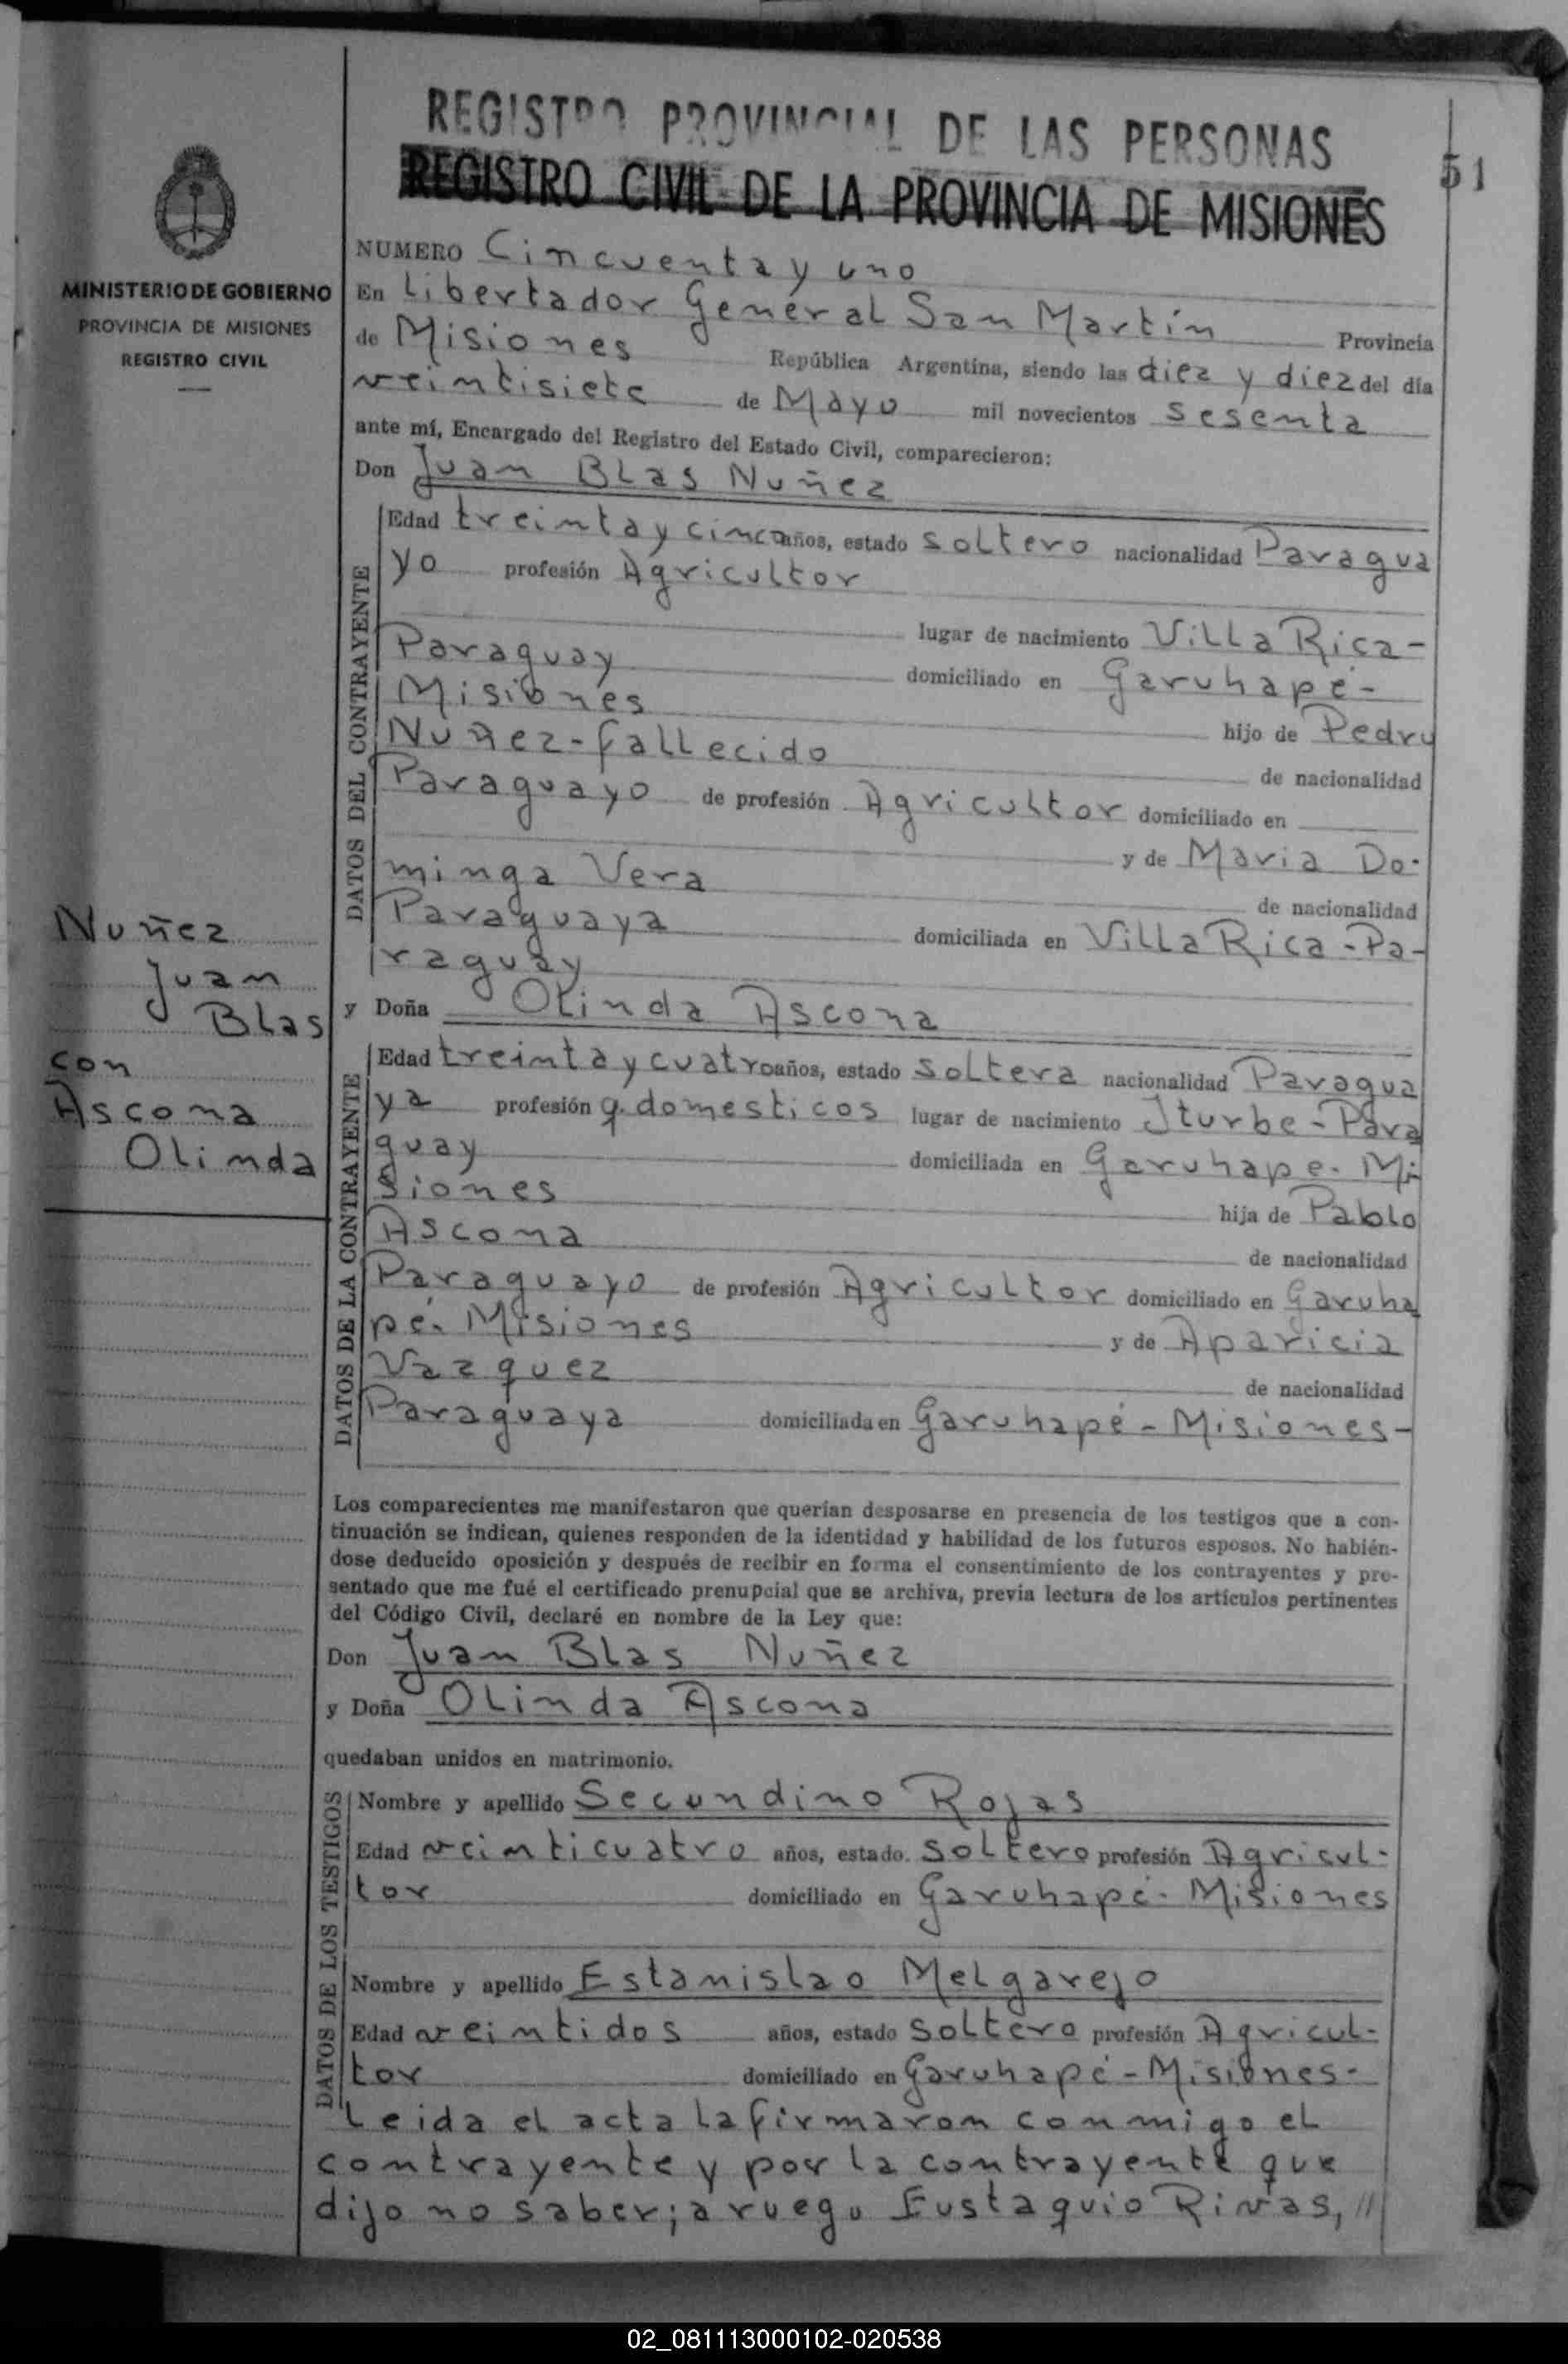 REGISTRO PROVINCIAL DE LAS PERSONAS
REGISTRO CIVIL DE LA PROVINCIA DE MISIONES
51
MINISTERIO DE GOBIERNO
PROVINCIA DE MISIONES
REGISTRO CIVIL
Nuñez
Juan
Blas
con
Ascona
Olinda
NUMERO Cincuenta y uno
En Libertador General San Martín Provincia
de Misiones República Argentina, siendo las diez y diez del día
veintisiete de Mayo mil novecientos sesenta
ante mí, Encargado del Registro del Estado Civil, comparecieron:
Don Juan Blas Nuñez
DATOS DEL CONTRAYENTE
Edad treinta y cinco años, estado soltero nacionalidad Paragua
yo profesión Agricultor
lugar de nacimiento Villa Rica-
Paraguay domiciliado en Garuhapé-
Misiones hijo de Pedro
Nuñez-fallecido de nacionalidad
Paraguayo de profesión Agricultor domiciliado en
y de Maria Do-
minga Vera de nacionalidad
Paraguaya domiciliada en Villa Rica-Pa-
raguay
y Doña Olinda Ascona
DATOS DE LA CONTRAYENTE
Edad treinta y cuatro años, estado soltera nacionalidad Paragua
ya profesión q. domesticos lugar de nacimiento Iturbe-Para
guay domiciliada en Garuhape. Mi
siones hija de Pablo
Ascona de nacionalidad
Paraguayo de profesión Agricultor domiciliado en Garuha
pé. Misiones y de Aparicia
Vazquez de nacionalidad
Paraguaya domiciliada en Garuhapé-Misiones-
Los comparecientes me manifestaron que querían desposarse en presencia de los testigos que a con-
tinuación se indican, quienes responden de la identidad y habilidad de los futuros esposos. No habién-
dose deducido oposición y después de recibir en forma el consentimiento de los contrayentes y pre-
sentado que me fué el certificado prenupcial que se archiva, previa lectura de los artículos pertinentes
del Código Civil, declaré en nombre de la Ley que:
Don Juan Blas Nuñez
y Doña Olinda Ascona
quedaban unidos en matrimonio.
DATOS DE LOS TESTIGOS
Nombre y apellido Secundino Rojas
Edad veinticuatro años, estado. soltero profesión Agricul-
tor domiciliado en Garuhapé-Misiones
Nombre y apellido Estanislao Melgarejo
Edad veintidos años, estado soltero profesión Agricul-
tor domiciliado en Garuhapé-Misiones-
Leida el acta la firmaron conmigo el
contrayente y por la contrayente que
dijo no saber; a ruego Eustaquio Rivas, //
02_081113000102-020538